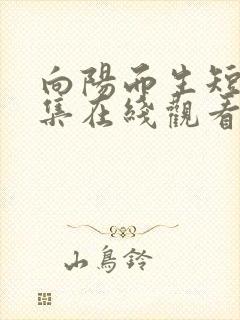 向陽而生短
集在綫觀看
山鳥鈴